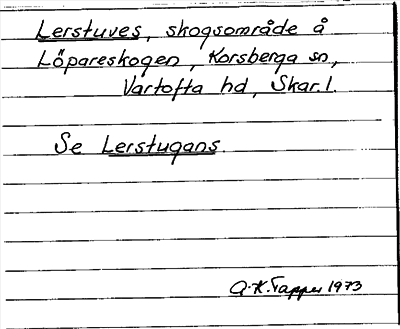 Lerstuves, skogsområde å
Löpareskogen, Korsberga sn,
Vartofta hd, Skar. l.
Se Lerstugans.
A.K. Tapper 1973